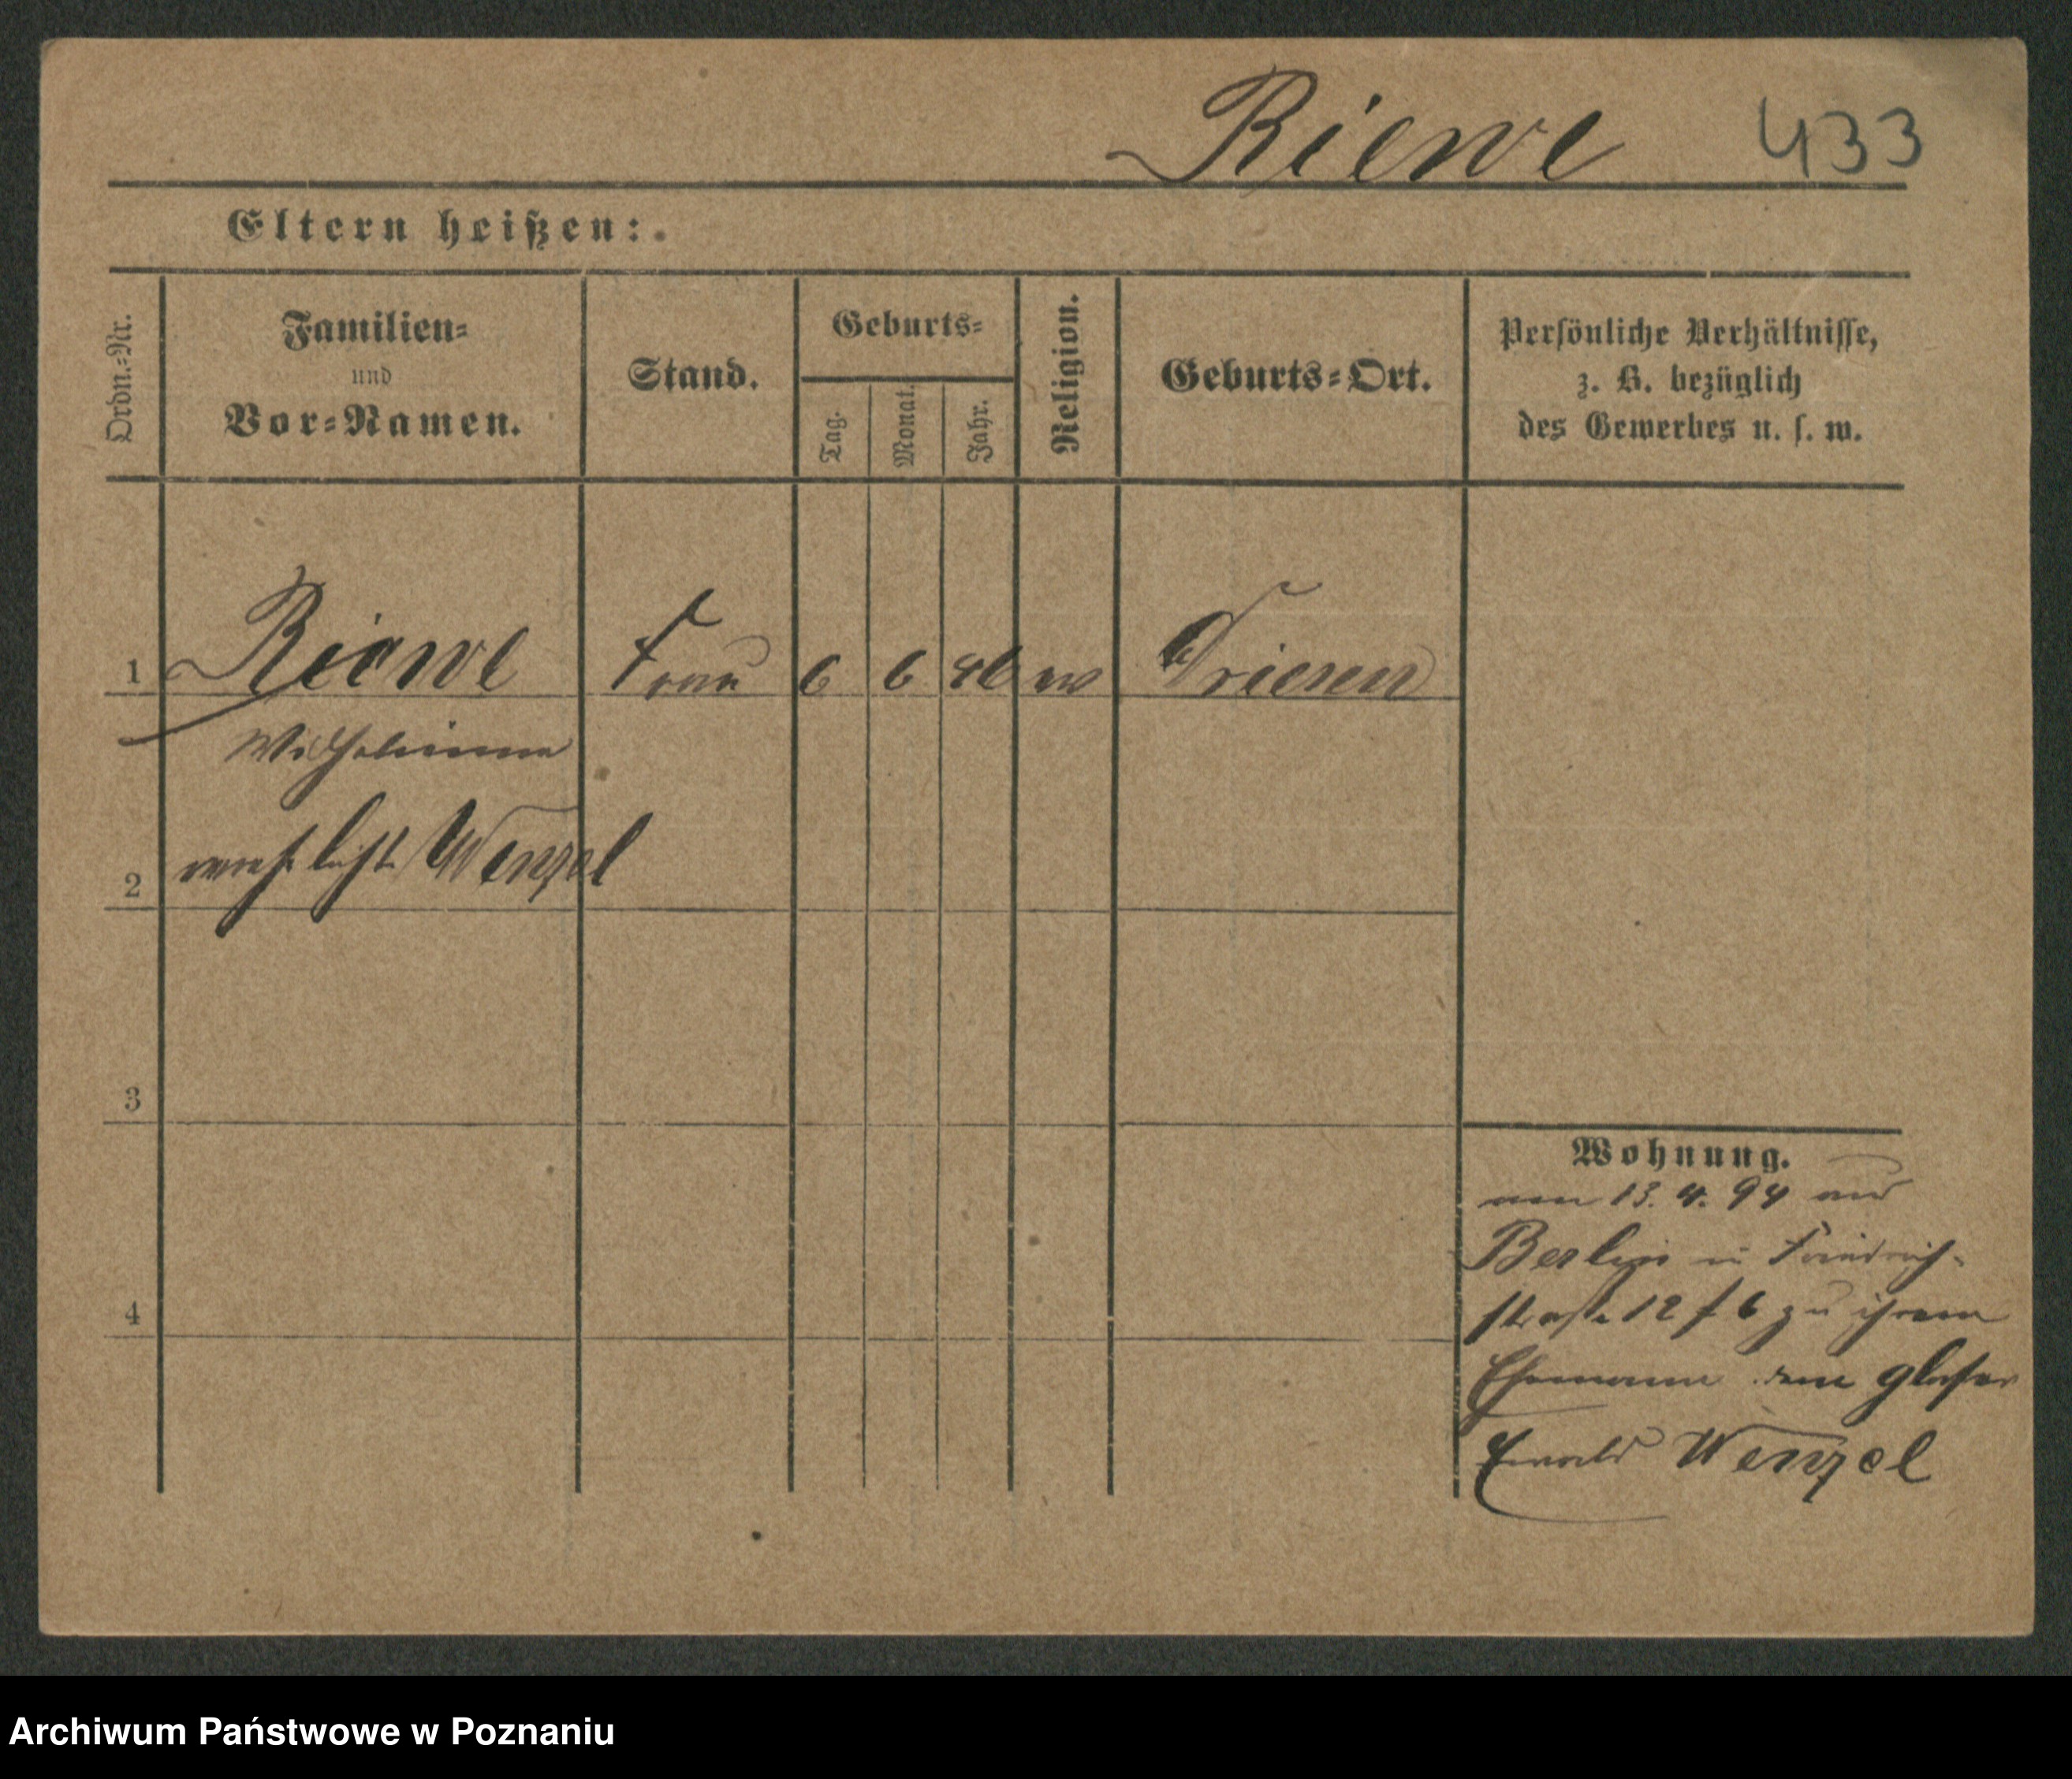 Riewe 433
Eltern heißen:
Ordn.-Nr.
Familien-
und
Vor-Namen.
Stand.
Geburts-
Tag.
Monat.
Jahr.
Religion.
Geburts-Ort.
Persönliche Verhältnisse,
z. B. bezüglich
des Gewerbes u. s. w.
1 Riewe Frau 6 6 46 ev Driesen
Wilhelmine
2 verehelichte Wenzel
3
4
Wohnung.
am 13. 4. 94 aus
Berlin Friedrich-
straße 12 6 zu ihrem
Ehemann dem Glaser
Ewald Wenzel
Archiwum Państwowe w Poznaniu